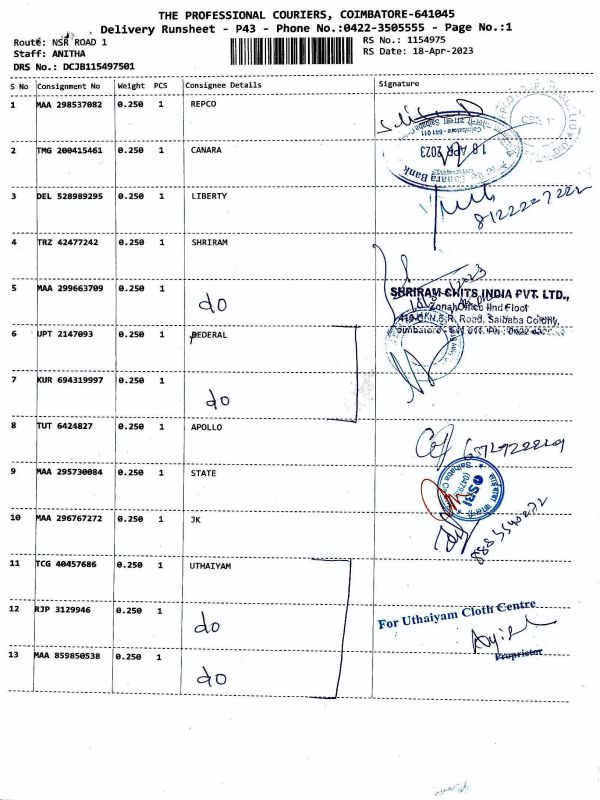 THE PROFESSIONAL COURIERS, COIMBATORE-641045
Delivery Runsheet - P43 - Phone No.:0422-3505555 - Page No.:1
Route: NSR ROAD 1
RS No.: 1154975
Staff: ANITHA
RS Date: 18-Apr-2023
DRS No.: DCJB115497501
S No Consignment No Weight PCS Consignee Details Signature
1 MAA 298537082 0.250 1 REPCO
2 TMG 200415461 0.250 1 CANARA
Coimbatore - 641 011
18 APR 2023
Canara Bank
3 DEL 528989295 0.250 1 LIBERTY
4 TRZ 42477242 0.250 1 SHRIRAM
5 MAA 299663709 0.250 1 do
SHRIRAM CHITS INDIA PVT. LTD.,
Zonal Office IInd Floor
N.S.R. Road, Saibaba Colony,
6 UPT 2147093 0.250 1 FEDERAL
7 KUR 694319997 0.250 1 do
8 TUT 6424827 0.250 1 APOLLO
9 MAA 295730084 0.250 1 STATE
SBI
10 MAA 296767272 0.250 1 JK
11 TCG 40457686 0.250 1 UTHAIYAM
12 RJP 3129946 0.250 1 do
For Uthaiyam Cloth Centre
Proprietor
13 MAA 859850538 0.250 1 do